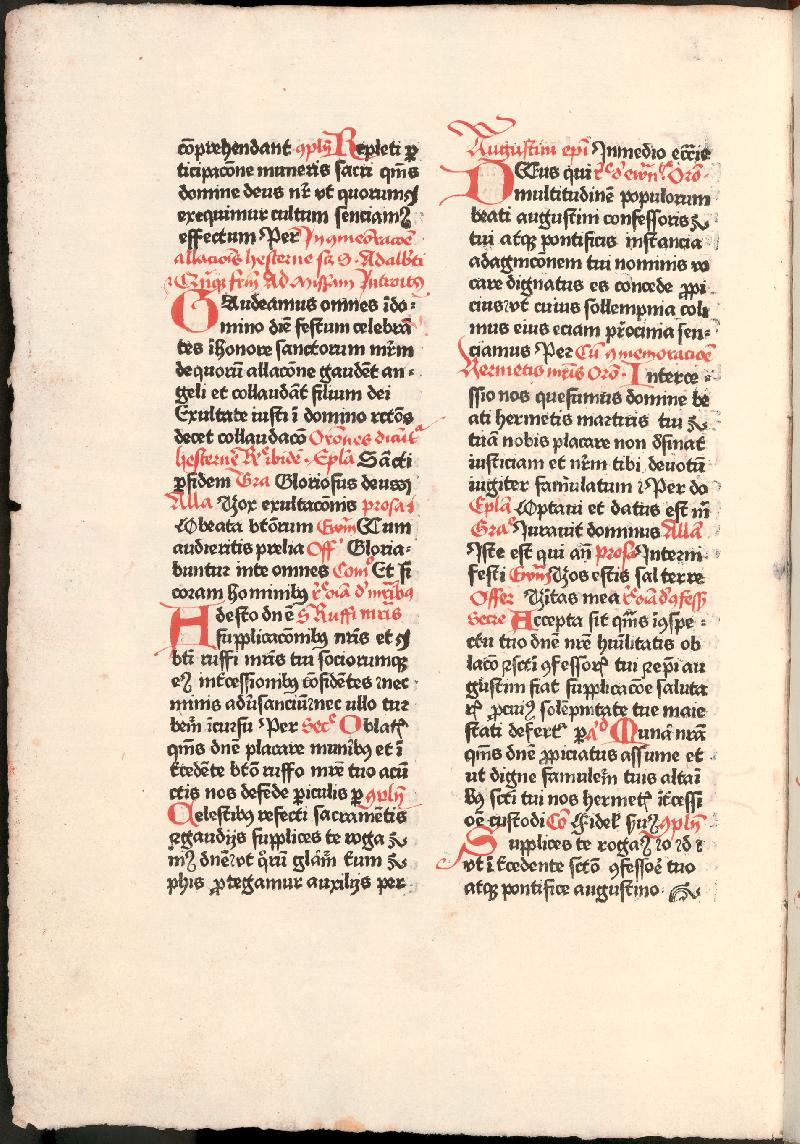 cōprehendant ꝯplīꝫ Repleti ꝑ
ticipacōne muneris sacri qm̄s
domine deus nr̄ vt quorum
exequimur cultum senciamꝰ
effectum Per In ꝯmēoracōe
allacionē hesterne scꝫ S Adalbti
Quīqꝫ frm̄ Ad Missam Introitꝰ
GAudeamus omnes ī do⸗
mino diē festum celebrā
tes ī honore sanctorum mr̄m
de quorū allacōne gaudēt an⸗
geli et collaudāt filium dei
Exultate iusti ī domino rctōs
decet collaudacō Orōnes dicūtᷣ
hesternē Rᷣ ibidē Epl̄a Sācti
ꝑ fidem Gra Gloriosus deus
Alla Vox exultacōnis prosa
O beata btōrum Ewm̄ Cum
audieritis prelia Off Gloria⸗
buntur in te omnes Com̄o Et si
coram hominibꝰ rᷣc oīa d mr̄ibꝰ
Adesto dn̄e S Ruffi mr̄is
supplicacōnibꝰ nr̄is et
bt̄i ruffi mr̄is tui sociorumqꝫ
eꝰ int̄cessionibꝰ cōfidētes nec
minis adūsanciū nec ullo tur
bem̄ īcursu Per Secᷓ Oblatꝭ
qm̄s dn̄e placare munibꝰ et ī
t̄cedēte btō ruffo mr̄e tuo a cū
ctis nos defēde ꝑiculis ꝑ ꝯplīꝫ
Celestibꝰ refecti sacramētis
⁊ gaudijs supplices te roga
mꝰ dn̄e vt qr̄ū glām̄ t̄um
phis ꝓtegamur auxilijs per
Augustini epi In medio ecc̄ie
DEus qui rᷣc d ewn̄ Orō
multitudinē populorum
beati augustini confessoris
tui atqꝫ pontificis instancia
ad agnicōnem tui nominis vo
care dignatus es concede ꝓpi
cius vt cuius sollempnia coli
mus eius eciam pr̄ocinia sen⸗
ciamus Per Cū ꝯmemoracōe
Hermetis mr̄is Orō Interce⸗
ssio nos quesumus domine be
ati hermetis martiris tui
tuā nobis placare non d̄sinat
iusticiam et nr̄m tibi deuotū
iugiter famulatum Per do
Epl̄a Optaui et datus est m̄
Graᷓ Iurauit dominus Alla
Iste est qui an̄ prosa Interni
festi Ewm̄ Vos estis sal terre
Offer Veritas mea rᷣc oīa d ꝯfess
Secre Accepta sit qm̄s ī ꝯspe⸗
ctu tuo dn̄e nr̄e hūilitatis ob
lacō ⁊ scti ꝯfessorꝭ tui ⁊ ep̄i au
gustini fiat supplicacōe saluta
rꝭ ꝓ cuiꝰ solēpnitate tue maie
stati defertꝭ ꝑ Ad Munā nr̄a
qm̄s dn̄e ꝓpiciatus assume et
ut digne famulem̄ tuis altai
bꝰ scti tui nos hermetꝭ īt̄cessi
oē custodi Cō Fidelꝭ ẜuꝰ ꝯplīꝫ
Supplices te rogaꝰ
vt ī t̄cedente sctō ꝯfessoe tuo
atqꝫ pontifice augustino